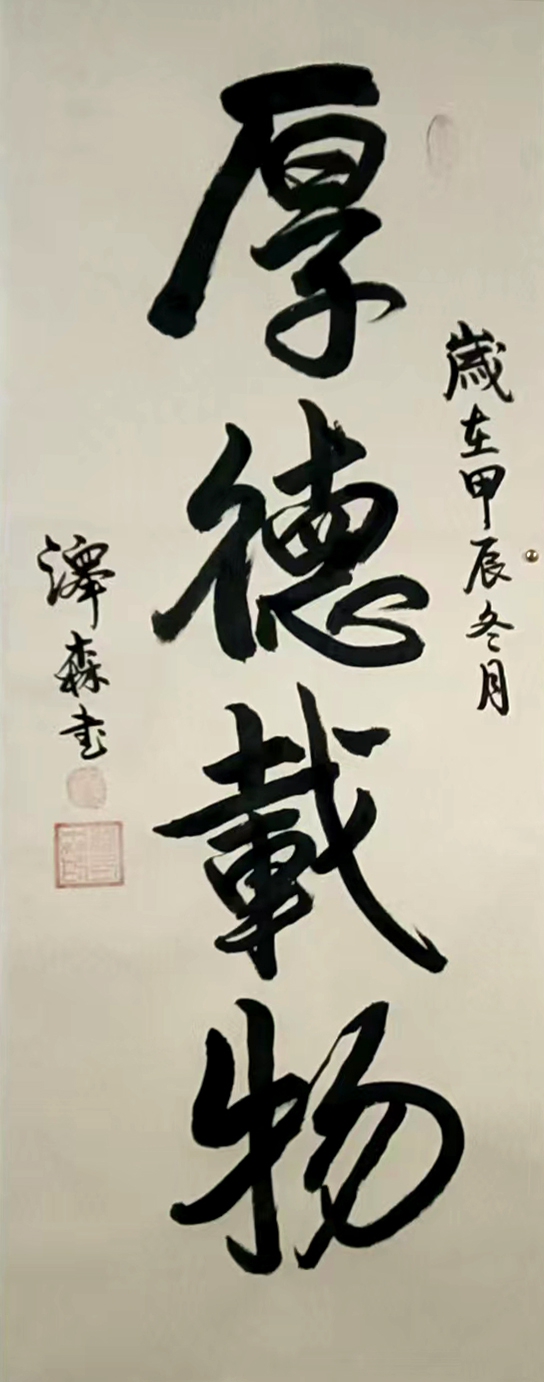 厚德載物
歲在甲辰冬月
澤森书